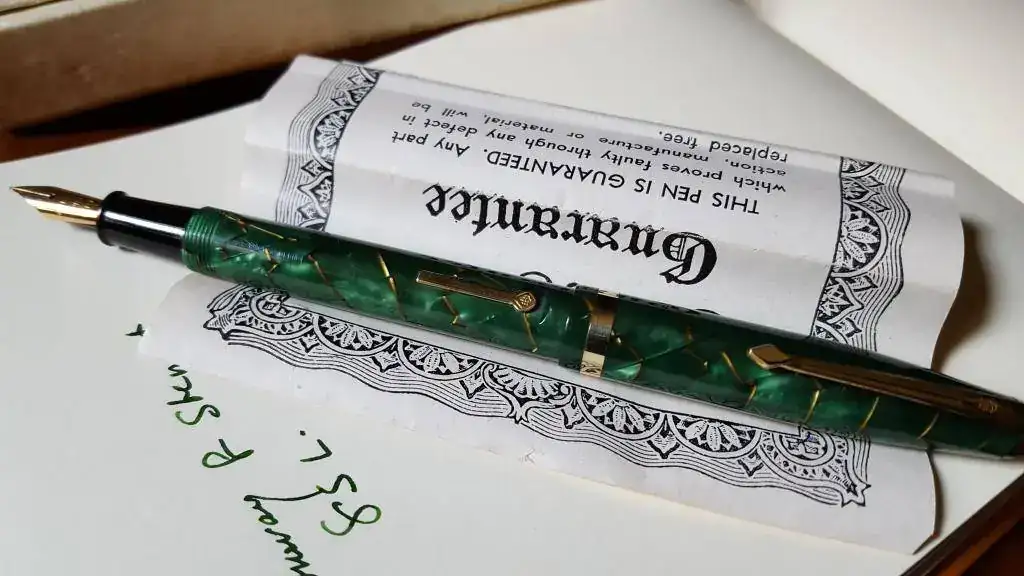 Guarantee
THIS PEN IS GUARANTEED. Any part
which proves faulty through any defect in
action, manufacture or material, will be
replaced free.